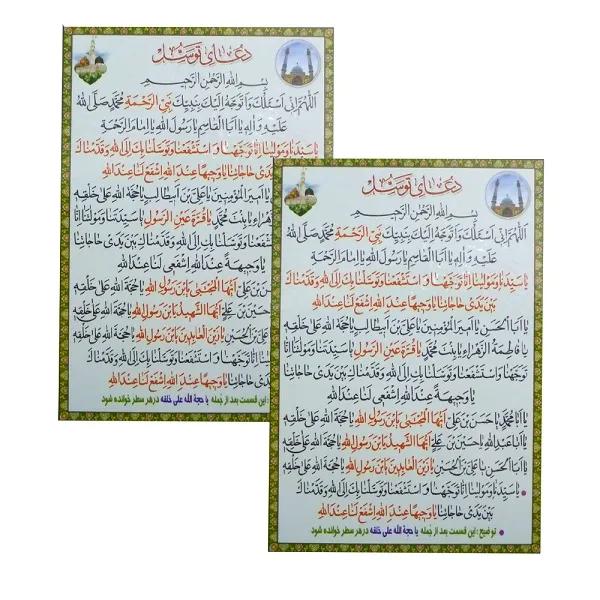 دعای توسل
بِسْمِ اللهِ الرَّحْمٰنِ الرَّحیمِ
اَللّٰهُمَّ اِنّی اَسْئَلُكَ وَ اَتَوَجَّهُ اِلَیْكَ بِنَبِیِّكَ نَبِیِّ الرَّحْمَةِ مُحَمَّدٍ صَلَّی اللهُ
عَلَیْهِ وَ آلِهِ یا اَبَا الْقاسِمِ یا رَسُولَ اللهِ یا اِمامَ الرَّحْمَةِ
یا سَیِّدَنا وَ مَوْلینا اِنّا تَوَجَّهْنا وَ اسْتَشْفَعْنا وَ تَوَسَّلْنا بِكَ اِلَی اللهِ وَ قَدَّمْناكَ
بَیْنَ یَدَیْ حاجاتِنا یا وَجیهاً عِنْدَ اللهِ اِشْفَعْ لَنا عِنْدَ اللهِ
یا اَبَا الْحَسَنِ یا اَمیرَ الْمُؤْمِنینَ یا عَلِیَّ بْنَ اَبیطالِبٍ یا حُجَّةَ اللهِ عَلی خَلْقِهِ
یا فاطِمَةُ الزَّهْراءُ یا بِنْتَ مُحَمَّدٍ یا قُرَّةَ عَیْنِ الرَّسُولِ یا سَیِّدَتَنا وَ مَوْلاتَنا اِنّا
تَوَجَّهْنا وَ اسْتَشْفَعْنا وَ تَوَسَّلْنا بِكِ اِلَی اللهِ وَ قَدَّمْناكِ بَیْنَ یَدَیْ حاجاتِنا
یا وَجیهَةً عِنْدَ اللهِ اِشْفَعی لَنا عِنْدَ اللهِ
یا اَبا مُحَمَّدٍ یا حَسَنَ بْنَ عَلِیٍّ اَیُّهَا الْمُجْتَبی یَابْنَ رَسُولِ اللهِ یا حُجَّةَ اللهِ عَلی خَلْقِهِ
یا اَبا عَبْدِاللهِ یا حُسَیْنَ بْنَ عَلِیٍّ اَیُّهَا الشَّهیدُ یَابْنَ رَسُولِ اللهِ یا حُجَّةَ اللهِ عَلی خَلْقِهِ
یا اَبَا الْحَسَنِ یا عَلِیَّ بْنَ الْحُسَیْنِ یا زَیْنَ الْعابِدینَ یَابْنَ رَسُولِ اللهِ یا حُجَّةَ اللهِ عَلی خَلْقِهِ
• یا سَیِّدَنا وَ مَوْلینا اِنّا تَوَجَّهْنا وَ اسْتَشْفَعْنا وَ تَوَسَّلْنا بِكَ اِلَی اللهِ وَ قَدَّمْناكَ
بَیْنَ یَدَیْ حاجاتِنا یا وَجیهاً عِنْدَ اللهِ اِشْفَعْ لَنا عِنْدَ اللهِ
• توضیح : این قسمت بعد از جمله یا حجة الله علی خلقه در هر سطر خوانده شود